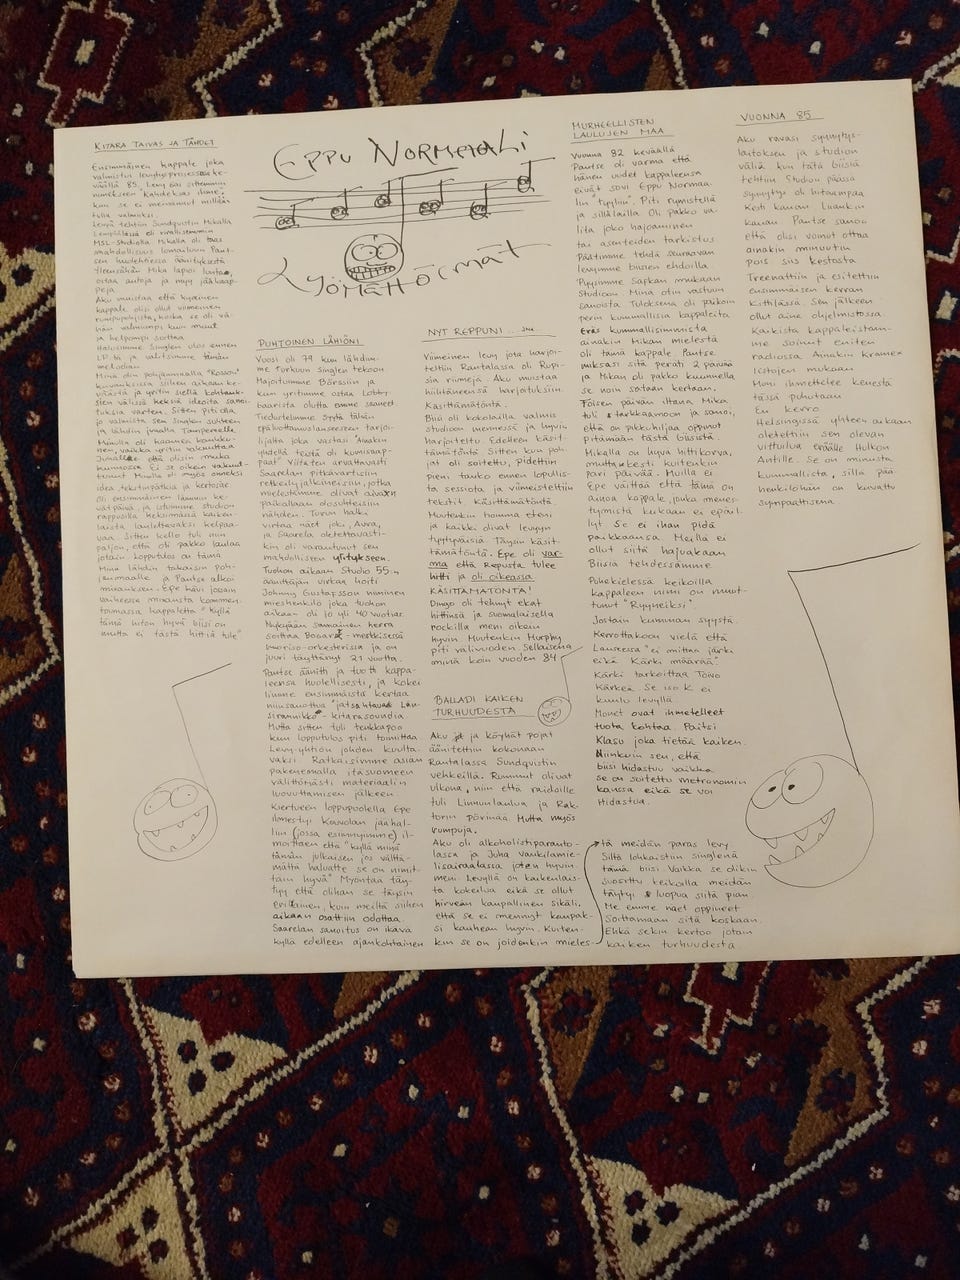 KITARA TAIVAS JA TÄHDET
Ensimmäinen kappale joka
valmistui levytysprosessia ke-
väällä 85. Levy sai sittemmin
nimekseen "Kahdeksas ihme"
kun se ei meinannut millään
tulla valmiiksi.
Levyä tehtiin Sundqvistin Mikalla
MSL-Studiolla. Mikalla oli taas
mahdollisuus lomailuun Pant-
sen huolehtiessa äänityksestä.
Yleensähän Mika lapioi lunta,
ostaa autoja ja myy jääkaap-
peja.
Aku muistaa että kyseinen
kappale olisi ollut viimeinen
rumpupohjista, koska se oli vä-
hän valmiimpi kuin muut
ja helpompi soittaa.
Halusimme Singlen ulos ennen
LP:tä ja valitsimme tämän
melodian.
Minä olin pohjannaulla "Rosson"
kuvauksissa siihen aikaan ke-
väästä ja yritin siellä kohtauk-
sien välissä keksiä ideoita sanoi-
tuksia varten. Sitten piti olla
jo valmista sen Singlen suhteen
ja lähdin junalla Tampereelle.
Minulla oli kauhea kankku-
nen, vaikka yritin vakuuttaa
Jumalille että olisin muka
kunnossa. Ei se oikein vakuut-
tanut. Minulla oli myös onneksi
idea tekstinpätkä ja kertosäe
Oli ensimmäinen lämmin ke-
vätpäivä ja istuimme studion
rappusilla keksimässä kaiken-
laista laulettavaksi kelpaa-
vaa. Sitten kello tuli niin
paljon, että oli pakko laulaa
jotain. Lopputulos on tämä
Minä lähdin takaisin poh-
jannaulle ja Pantse alkoi
miksauksen. Epe kävi jossain
vaiheessa miksausta kommen-
toimassa kappaletta "kyllä
tämä hiton hyvä biisi on
mutta ei tästä hittiä tule"
EPPU NORMAALI
LYÖMÄTTÖMÄT
PUHTOINEN LÄHIÖNI
Vuosi oli 79 kun lähdim-
me Turkuun singlen tekoon
Majoituimme Börssiin ja
kun yritimme ostaa Lobby
baarista olutta emme saaneet
Tiedustelimme syytä tähän
epäluottamuslauseeseen tarjoi-
lijalta joka vastasi "Ainakin
yhdellä teistä oli kumisaap-
paat". Viitaten arvattavasti
Saarelan pitkävartisiin
retkeilyjalkineisiin, jotka
mielestämme olivat aivan
paikallaan olosuhteisiin
nähden. Turun halki
virtaa näet joki, Aura,
ja Saarela oletettavasti-
kin oli varautunut sen
mahdolliseen ylitykseen.
Tuohon aikaan Studio 55:n
äänittäjän virkaa hoiti
Johnny Gustafsson niminen
mieshenkilö joka tuohon
aikaan oli jo yli 40 vuotias.
Nykyään samainen herra
soittaa Bogart-merkkisessä
nuoriso-orkesterissa ja on
juuri täyttänyt 21 vuotta.
Pantse äänitti ja tuotti kappa-
leensa huolellisesti, ja kokei
limme ensimmäistä kertaa
niinsanottua "jatsahtavaa Län-
sirannikko"-kitarasoundia
Mutta sitten tuli tenkkapoo
kun lopputulos piti toimittaa
Levy-yhtiön johdon kuulta-
vaksi. Ratkaisimme asian
pakenemalla itäsuomeen
välittömästi materiaalin
luovuttamisen jälkeen.
Kiertueen loppupuolella Epe
ilmestyi Kouvolan jäähal-
liin (jossa esiinnyimme) il-
moittaen että "kyllä minä
tämän julkaisen jos välttä-
mättä haluatte se on nimit-
täin hyvä". Myöntää täy-
tyy että olihan se täysin
erilainen, kuin meiltä siihen
aikaan osattiin odottaa.
Saarelan sanoitus on ikävä
kyllä edelleen ajankohtainen
NYT REPPUNI... JNE..
Viimeinen levy jota harjoi-
teltiin Rantalassa oli Rupi-
sia riimejä. Aku muistaa
hiihtäneensä harjoituksiin.
Käsittämätöntä.
Biisi oli kokolailla valmis
studioon mennessä ja hyvin
harjoiteltu. Edelleen käsit-
tämätöntä. Sitten kun poh-
jat oli soitettu, pidettiin
pieni tauko ennen lopullis-
ta sessiota ja viimeisteltiin
tekstit. Käsittämätöntä.
Muutenkin homma eteni
ja kaikki olivat levyyn
tyytyväisiä. Täysin käsit-
tämätöntä. Epe oli var-
ma että Repusta tulee
hitti ja oli oikeassa
KÄSITTÄMÄTÖNTÄ!
Dingo oli tehnyt ekat
hittinsä ja suomalaisella
rockilla meni oikein
hyvin. Muutenkin Murphy
piti välivuoden. Sellaisena
minä koin vuoden 84
BALLADI KAIKEN
TURHUUDESTA
Aku ja ja köyhät pojat
äänitettiin kokonaan
Rantalassa Sundqvistin
vehkeillä. Rummut olivat
ulkona, niin että raidoille
tuli Linnunlaulua ja Trak-
torin pörinää. Mutta myös
rumpuja.
Aku oli alkoholistiparanto-
lassa ja Juha vankilamie-
lisairaalassa joten hyvin
meni. Levyllä on kaikenlais-
ta kokeilua eikä se ollut
hirveän kaupallinen sikäli,
että se ei mennyt kaupak-
si kauhean hyvin. Kuiten-
kin se on joidenkin mieles-
MURHEELLISTEN
LAULUJEN MAA
Vuonna 82 keväällä
Pantse oli varma että
hänen uudet kappaleensa
eivät sovi Eppu Normaa-
lin "tyyliin". Piti rymistellä
ja sillälailla. Oli pakko va-
lita joko hajoaminen
tai asenteiden tarkistus.
Päätimme tehdä seuraavan
levymme biisien ehdoilla
Pyysimme Sapkan mukaan
Studioon. Minä otin vastuun
sanoista. Tuloksena oli paikoin
perin kummallisia kappaleita
Eräs kummallisimmista
ainakin Mikan mielestä
oli tämä kappale. Pantse
miksasi sitä peräti 2 päivää
ja Mikan oli pakko kuunnella
se noin sataan kertaan.
Toisen päivän iltana Mika
tuli tarkkaamoon ja sanoi,
että on pikkuhiljaa oppinut
pitämään tästä biisistä.
Mikalla on hyvä hittikorva,
mutta kesti kuitenkin
pari päivää. Muilla ei
Epe väittää että tämä on
ainoa kappale, jonka menes-
tymistä kukaan ei epäil
lyt. Se ei ihan pidä
paikkaansa. Meillä ei
ollut siitä hajuakaan
Biisiä tehdessämme.
Puhekielessä keikoilla
kappaleen nimi on muut-
tunut "Ryyneiksi".
Jostain kumman syystä.
Kerrottakoon vielä että
Lauseessa "ei mittää järki
eikä Kärki määrää"
Kärki tarkoittaa Toivo
Kärkeä. Se iso K ei
kuulu levyllä.
Monet ovat ihmetelleet
tuota kohtaa. Paitsi
Klasu joka tietää kaiken.
Niinkuin sen, että
biisi hidastuu vaikka
se on soitettu metronomin
kanssa eikä se voi
Hidastua.
tä meidän paras levy
Siltä lohkaistiin singlenä
tämä biisi. Vaikka se olikin
suosittu keikoilla meidän
täytyi luopua siitä pian.
Me emme näet oppineet
Soittamaan sitä koskaan.
Ehkä sekin kertoo jotain
kaiken turhuudesta
VUONNA 85
Aku ravasi synnytys-
laitoksen ja studion
väliä kun tätä biisiä
tehtiin. Studion päässä
synnytys oli hitaampaa
Kesti kauan. Liiankin
kauan. Pantse sanoo
että olisi voinut ottaa
ainakin minuutin
pois siis kestosta
Treenattiin ja esitettiin
ensimmäisen kerran
Kittilässä. Sen jälkeen
ollut aina ohjelmistossa.
Kaikista kappaleistam-
me soinut eniten
radiossa. Ainakin Gramex
listojen mukaan
Moni ihmettelee kenestä
tässä puhutaan
En kerro
Helsingissä yhteen aikaan
oletettiin sen olevan
vittuilua eräälle Hulkon
Antille. Se on minusta
kummallista, sillä pää
henkilöhän on kuvattu
sympaattisena